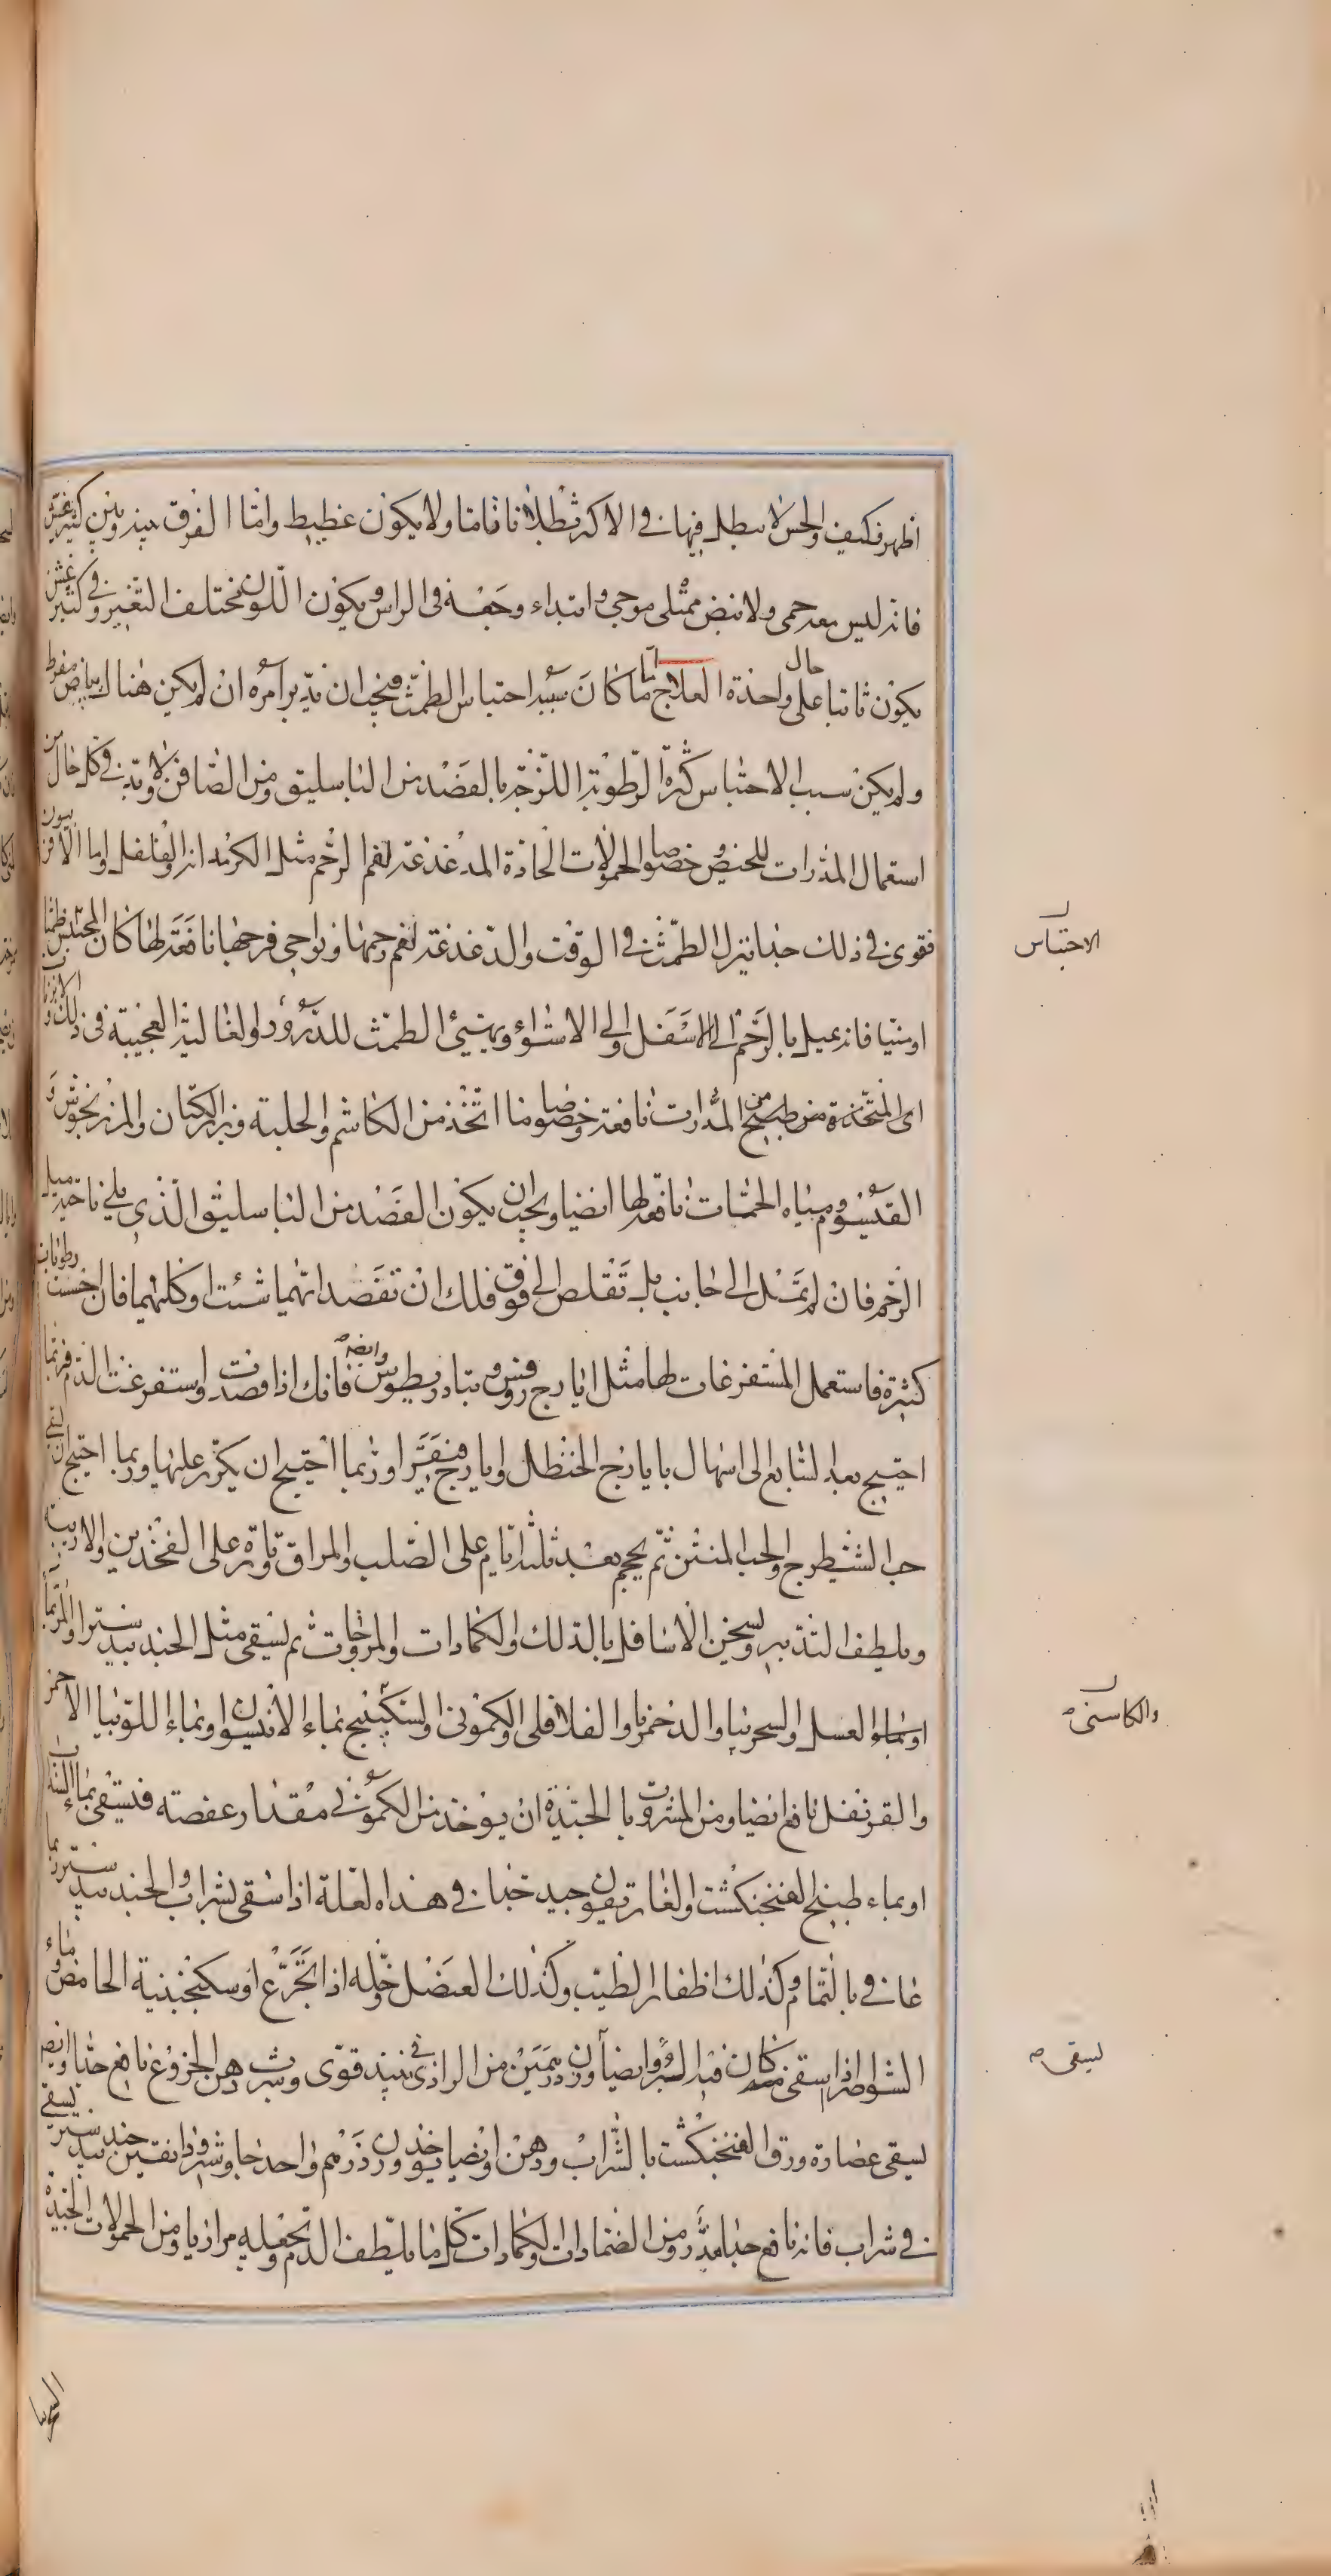 اظهر فكيف والحس لا يبطل فيها في الاكثر بطلانا تاما ولا يكون غطيط واما الفرق بينه وبين كثير
فانه ليس معه حمى ولا نبض ممتلى موجى وابتداء وجعه فى الراس ويكون اللون مختلف التغير وفى كثير
يكون ثابتا على حال واحدة العلاج اما ما كان سببه احتباس الطمث فيجب ان يدبر امره ان لم يكن هناك بياض مفرط
ولم يكن سبب الاحتباس كثرة الرطوبة اللزجة بالفصد من الباسليق ومن الصافن لا بد فى كل حال من
استعمال المدرات للحيض وخصوصا الحمولات الحادة المدغدغة لفم الرحم مثل الكرمدانه والفلفل واما الافربيون
فقوى فى ذلك جدا ينزل الطمث فى الوقت والدغدغة لفم رحمها ونواحى فرجها نافعة لها كان المحتبس طمثا
او منيا فانه يميل بالرحم الى الاسفل والى الاستواء ويهيئ الطمث للدرور والغالية العجيبة فى ذلك
اى المتخذة من طبيخ المدرات نافعة وخصوصا ما اتخذ من الكاشم والحلبة وبزر الكتان والمرزنجوش و
القيسوم ومياه الحمات نافعة لها ايضا ويجب ان يكون الفصد من الباسليق الذى يلى ناحية ميل
الرحم فان لم تمل الى جانب بل تقلص الى فوق فلك ان تفصد ايهما شئت او كليهما فان احسست رطوبات
كثيرة فاستعمل المستفرغات لها مثل ايارج روفس وتيادريطوس وايضا فانك اذا فصدت واستفرغت الدم فربما
احتيج بعد السابع الى اسهال بايارج الحنظل او ايارج فيقرا وربما احتيج ان يكرر عليها وربما احتيج ان
حب الشيطرج والحب المنتن ثم يحجم بعد ثلثة ايام على الصلب والمراق وتارة على الفخذين والاربية
ويلطف التدبير ويسخن الاسافل بالدلك والكمادات والمروخات ثم يسقى مثل الجندبيدستر او المر بماء
او بماء العسل او السجرنيا والدحمرثا والفلافلى والكمونى والسكبينج بماء الانيسون او بماء اللوبيا الاحمر
والقرنفل نافع ايضا ومن المشروبات الجيدة ان يوخذ من الكمونى مقدار عفصة فيسقى بماء السذاب
او بماء طبيخ الفنجنكشت والغاريقون جيد جدا فى هذه العلة اذا سقى بشراب والجندبيدستر ربما
عافى بالتمام وكذلك اظفار الطيب وكذلك العنصل وخله اذا تجرع او سكنجبينه الحامض وماء
الشواصرا اذا سقى منه كان فيه البرو وايضا وزن درهمين من الراذى فى نبيذ قوى وشرب دهن الخروع نافع جدا وايضا
يسقى عصارة ورق الفنجنكشت بالشراب ودهن وايضا يوخذ وزن درهم واحد جاوشير ودانقين جندبيدستر يسقى
فى شراب فانه نافع جدا مدر ومن الضمادات والكمادات كل ما يلطف الدم ويجعله مراريا ومن الحمولات الجيدة
الاحتباس
والكاسنى
يسقى